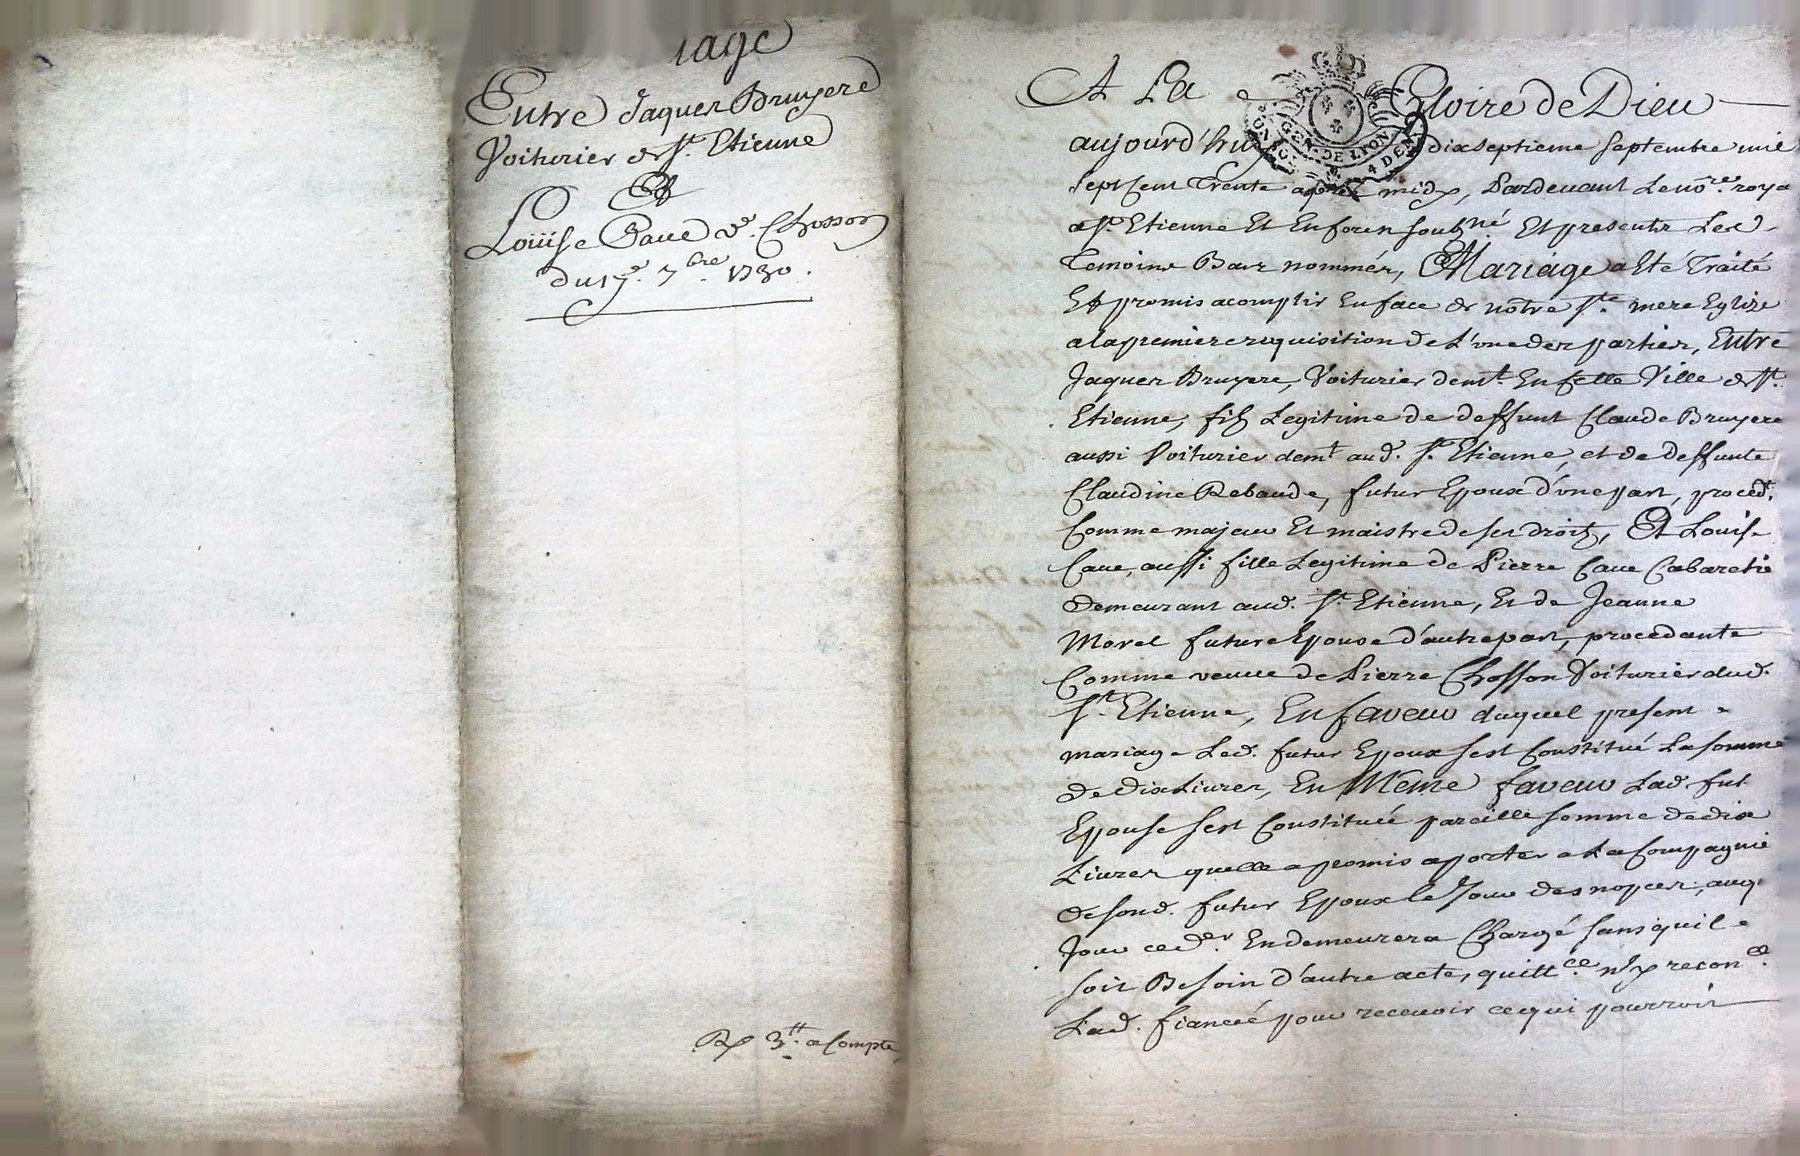 iage
Entre Jaques Bruyere
Voiturier de St. Etienne
Et
Loüise Caue ve. Chosson
du 17e. 7bre. 1730.
3tt. a Compte
A La Gloire de Dieu
GEN. DE LYON
4 DEN
aujourd'huy dixseptieme septembre mil
sept Cent Trente apres midy, Pardevant Le nore. royal
a St. Etienne Et En forez soubzné Et presents Les
Temoins Bas nommés, Mariage a Eté Traité
Et promis acomplir En face de notre Ste. mere Eglize
a la premiere requisition de L'une des parties, Entre
Jaques Bruyere, Voiturier demt. En Cette Ville de St.
Etienne, fils Legitime de deffunt Claude Bruyere
aussi Voiturier demt. aud. St. Etienne, et de deffunte
Claudine Rebaude, futur Epoux d'une part, proced.
Comme majeur Et maistre de ses droits, Et Louise
Caue, aussi fille Legitime de Pierre Caue Cabaretie
demeurant aud. St. Etienne, Et de Jeanne
Morel future Epouse d'autre part, procedante
Comme veuue de Pierre Chosson Voiturier dud.
St. Etienne, En faveur duquel present
mariage Led. futur Epoux sest Constitué La somme
de dix Livres, En Meme faveur Lad. fut.
Epouse sest Constituée pareille somme de dix
Livres quelle a promis aporter a La Compagnie
de sond. futur Epoux le Jour des nopces, auq.
Jour ced. er En demeurera Chargé sans quil
soit Besoin d'autre acte, quittce. ny reconce.
Lad. fiancée pour receuoir ce qui pourroit